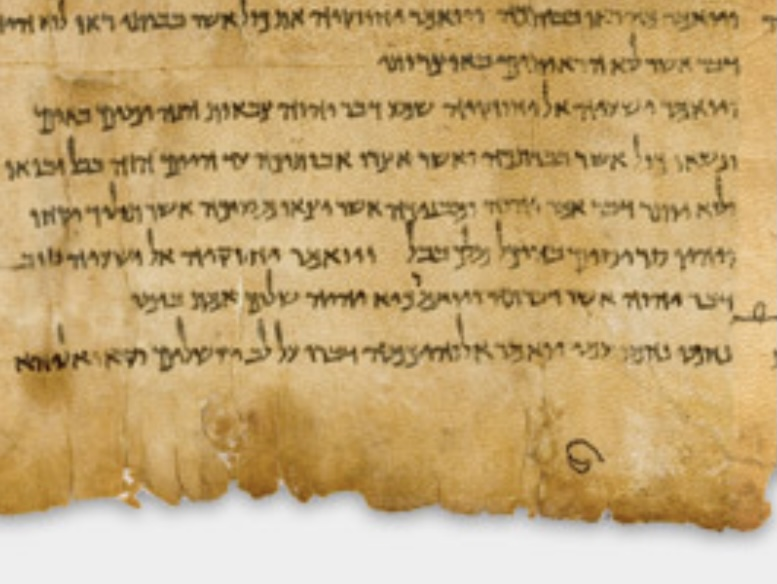 ויואמר מה ראו בביתכה ויואמר יחוזקיה את כול אשר בביתי ראו לוא היה
דבר אשר לא הראיתים באוצרותי
ויואמר ישעיה אל יחוזקיה שמע דבר יהוה צבאות הנה ימים באים
ונשאו כול אשר בביתכה ואשר אצרו אבותיכה עד היום הזה בבל יבואו
ולא יותר דבר אמר יהוה ומבניכה אשר יצאו ממעיכה אשר תוליד יקחו
והיו סריסים בהיכל מלך בבל ויואמר יחזקיה אל ישעיה טוב
דבר יהוה אשר דברתה ויואמר כיא יהיה שלום אמת בימי
נחמו נחמו עמי יואמר אלוהיכמה דברו על לב ירושלים וקראו אליהא